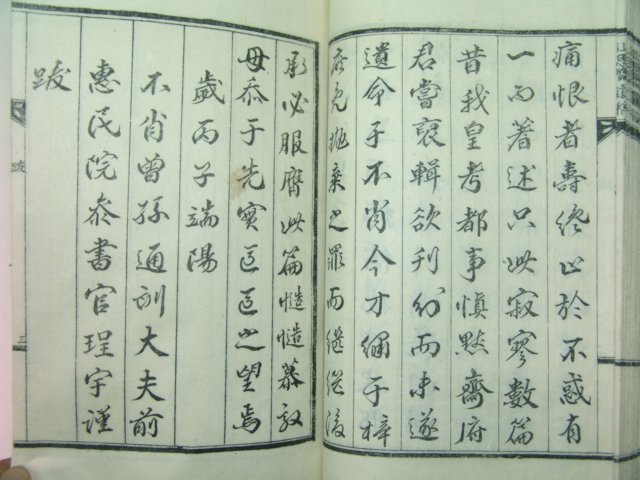 痛恨者壽終止於不惑有
一而著述只此寂寥數篇
昔我皇考都事愼默齋府
君嘗裒輯欲刊而未遂
遺命于不肖今才繡于梓
庶免抛棄之罪而継継後
承必服膺此篇慥慥慕效
毋忝于先實區區之望焉
歲丙子端陽
不肖曾孫通訓大夫前
惠民院叅書官珵宇謹
跋
跋
三